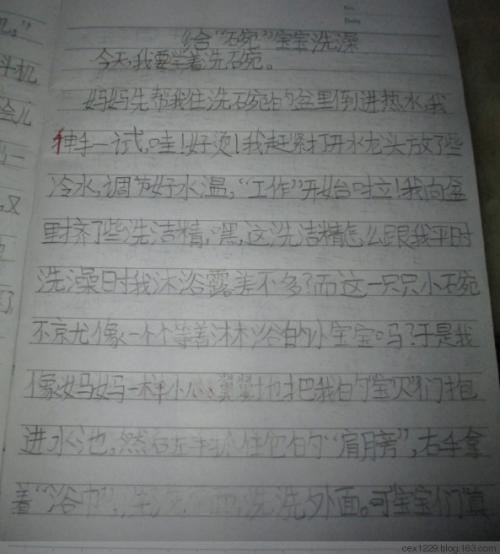 《给“碗”宝宝洗澡
今天,我要学着洗碗。
妈妈先帮我往洗碗的盆里倒进热水,我
伸手一试,哇!好烫!我赶紧打开水龙头放了些
冷水,调好水温,“工作”开始啦!我向盆
里挤了些洗洁精,嘿,这洗洁精怎么跟我平时
洗澡时沐浴露差不多?而这一只只小碗
不就像一个个等着沐浴的小宝宝吗?于是我
像妈妈一样小心翼翼地把我的“宝贝”们抱
进水池,然后左手抓住它的“肩膀”,右手拿
着“浴巾”,洗洗外面。可宝宝们真
cex1229.blog.163.com